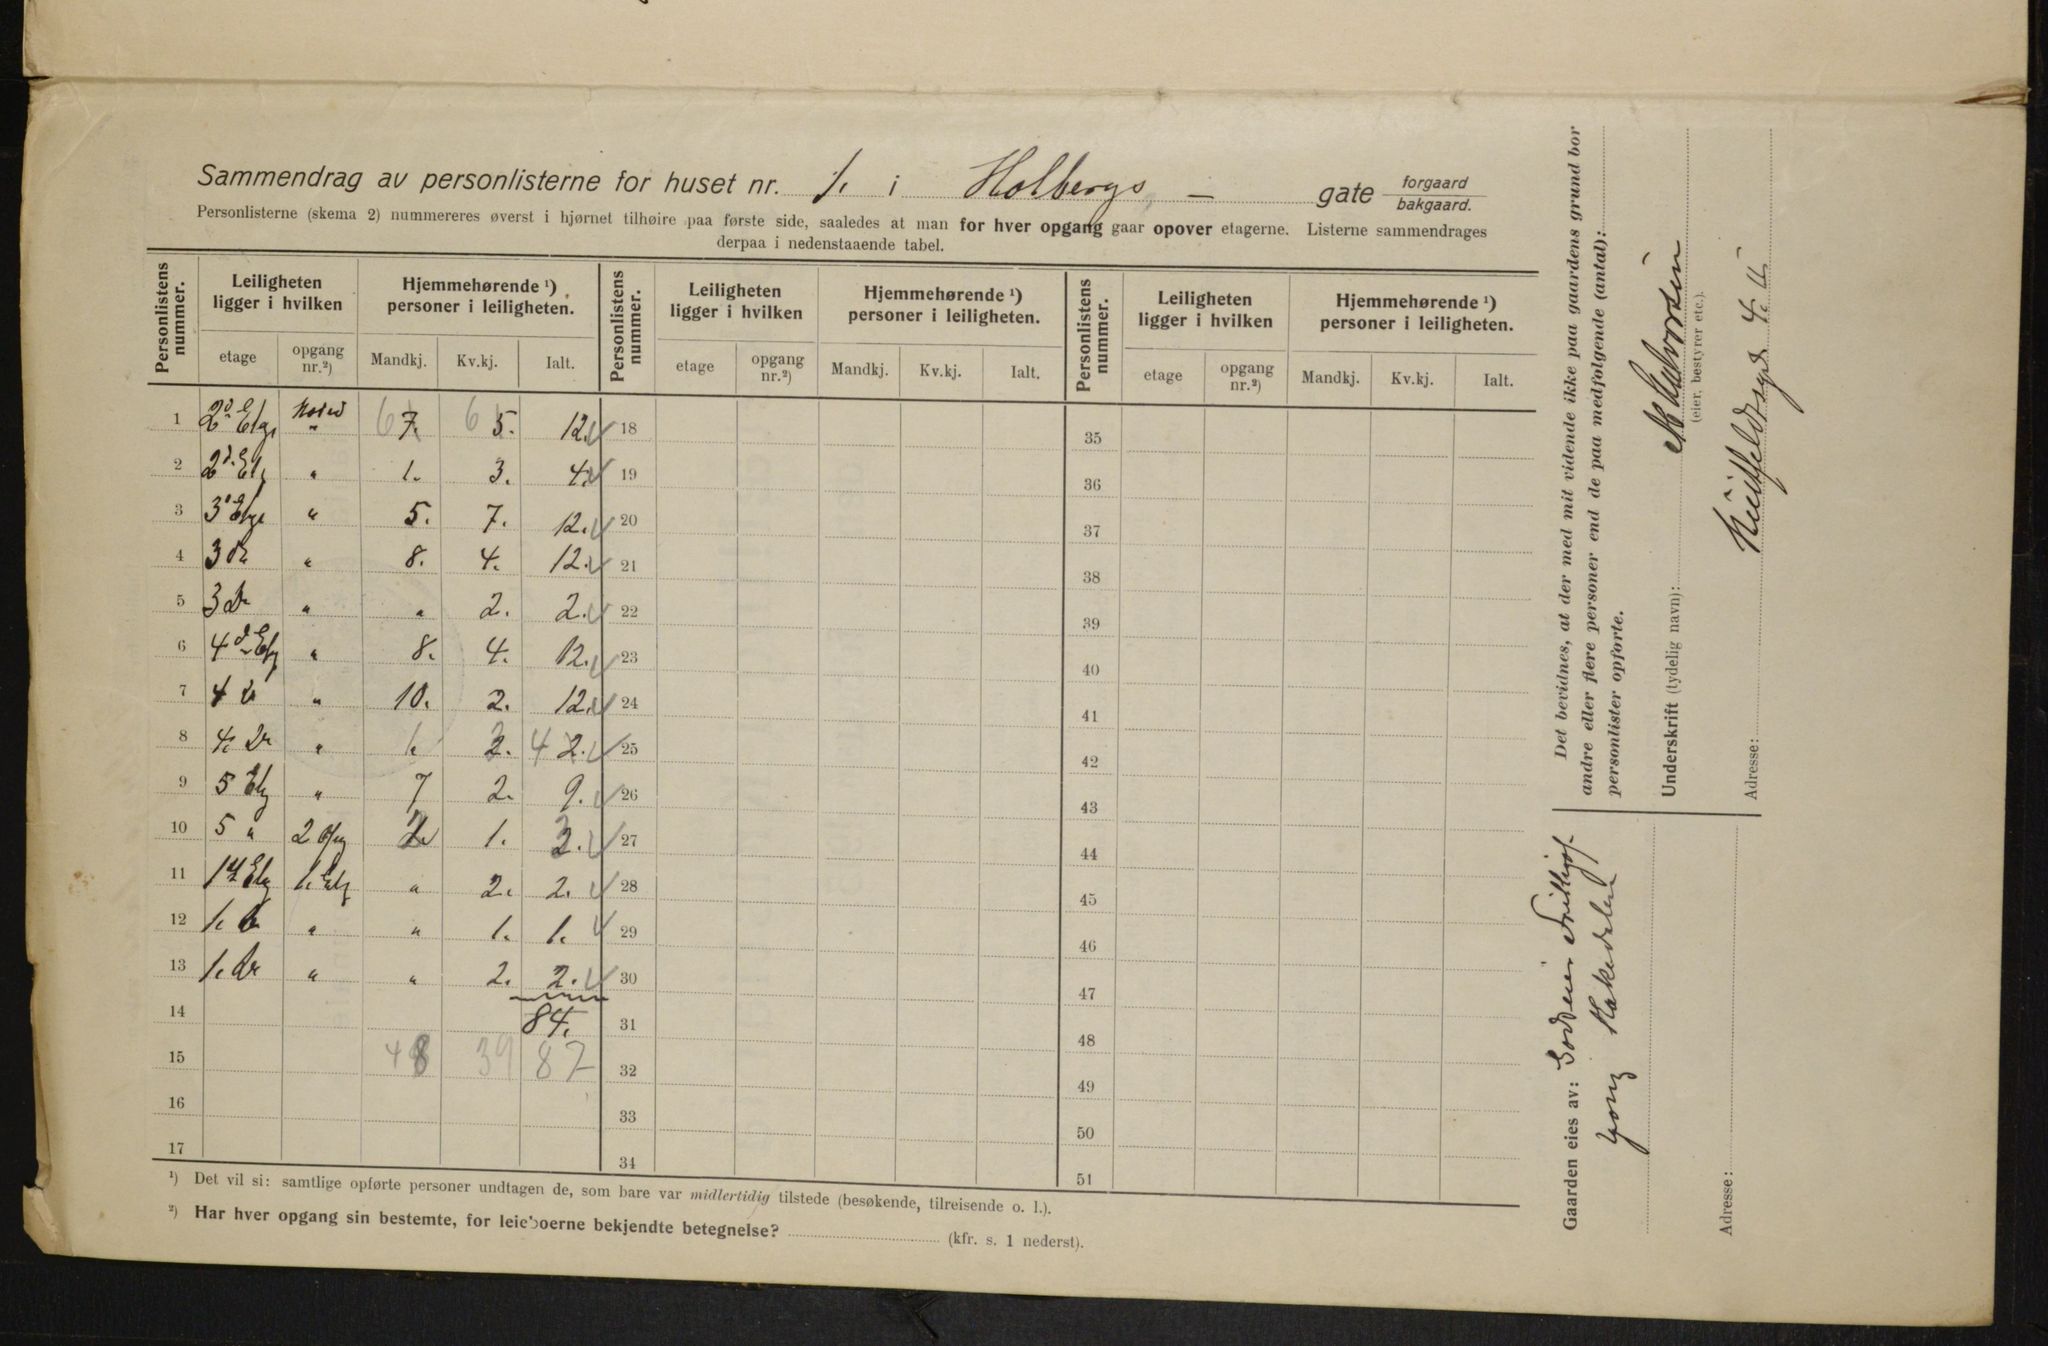 Sammendrag av personlisterne for huset nr. 1. i Holbergs — gate forgaard bakgaard.
Personlisterne (skema 2) nummereres øverst i hjørnet tilhøire paa første side, saaledes at man for hver opgang gaar opover etagerne. Listerne sammendrages
derpaa i nedenstaaende tabel.
Personlistens nummer. Leiligheten ligger i hvilken Hjemmehørende ¹) personer i leiligheten. Personlistens nummer. Leiligheten ligger i hvilken Hjemmehørende ¹) personer i leiligheten. Personlistens nummer. Leiligheten ligger i hvilken Hjemmehørende ¹) personer i leiligheten.
etage opgang nr.²) Mandkj. Kv.kj. Ialt. etage opgang nr.²) Mandkj. Kv.kj. Ialt. etage opgang nr.²) Mandkj. Kv.kj. Ialt.
1 2d Etg " 6 7. 6 5. 12. 18 35
2 2d. Etg " 1. 3. 4. 19 36
3 3d Etge " 5. 7. 12. 20 37
4 3 do " 8. 4. 12. 21 38
5 3 do " " 2. 2. 22 39
6 4d Etg " 8. 4. 12. 23 40
7 4 do " 10. 2. 12. 24 41
8 4. do " 1. 3. 4 2. 25 42
9 5 Etg " 7 2. 9. 26 43
10 5 " 2 Opg 2. 1. 3. 27 44
11 1st Etg 1. Etg " 2. 2. 28 45
12 1. do " " 1. 1. 29 46
13 1. do " " 2. 2. 30 47
14 84. 31 48
15 48 39 87 32 49
16 33 50
17 34 51
¹) Det vil si: samtlige opførte personer undtagen de, som bare var midlertidig tilstede (besøkende, tilreisende o. l.).
²) Har hver opgang sin bestemte, for leieboerne bekjendte betegnelse? (kfr. s. 1 nederst).
Det bevidnes, at der med mit vidende ikke paa gaardens grund bor
andre eller flere personer end de paa medfølgende (antal):
personlister opførte.
Underskrift (tydelig navn): M Halvorsen
(eier, bestyrer etc.).
Adresse: Huitfeldsgd 4. II
Gaarden eies av: Godseier Frithjof
Adresse: